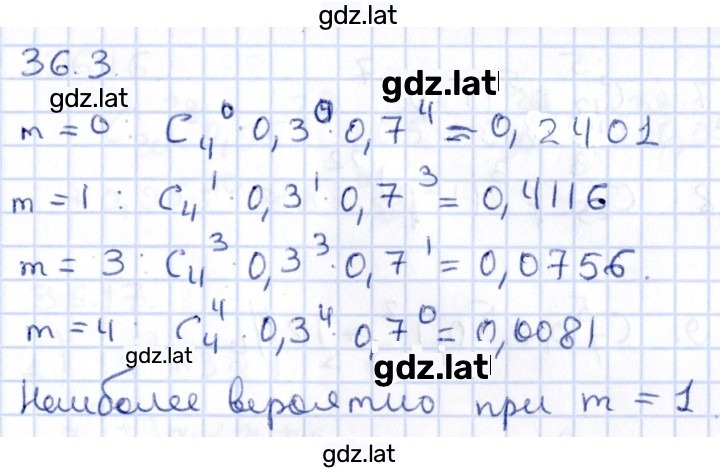 gdz.lat
36.3.
gdz.lat
gdz.lat
m = 0 : C₄⁰ · 0,3⁰ · 0,7⁴ = 0,2401
m = 1 : C₄¹ · 0,3¹ · 0,7³ = 0,4116
m = 3 : C₄³ · 0,3³ · 0,7¹ = 0,0756.
m = 4 : C₄⁴ · 0,3⁴ · 0,7⁰ = 0,0081
gdz.lat
gdz.lat
Наиболее вероятно при m = 1
gdz.lat